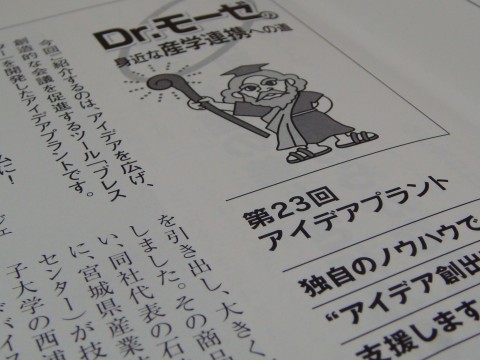 Dr.モーゼの
身近な産学連携への道
今回ご紹介するのは、アイデアを広げ、
創造的な会議を促進するツール「ブレス
ターを開発したアイデアプラントです。
ムに!
第23回
アイデアプラント
独自のノウハウで
“アイデア創出
支援します
ジェ
を引き出し、大きく
しました。その商品
い、同社代表の石
に、宮城県産業技
センター)が技
子大学の西浦